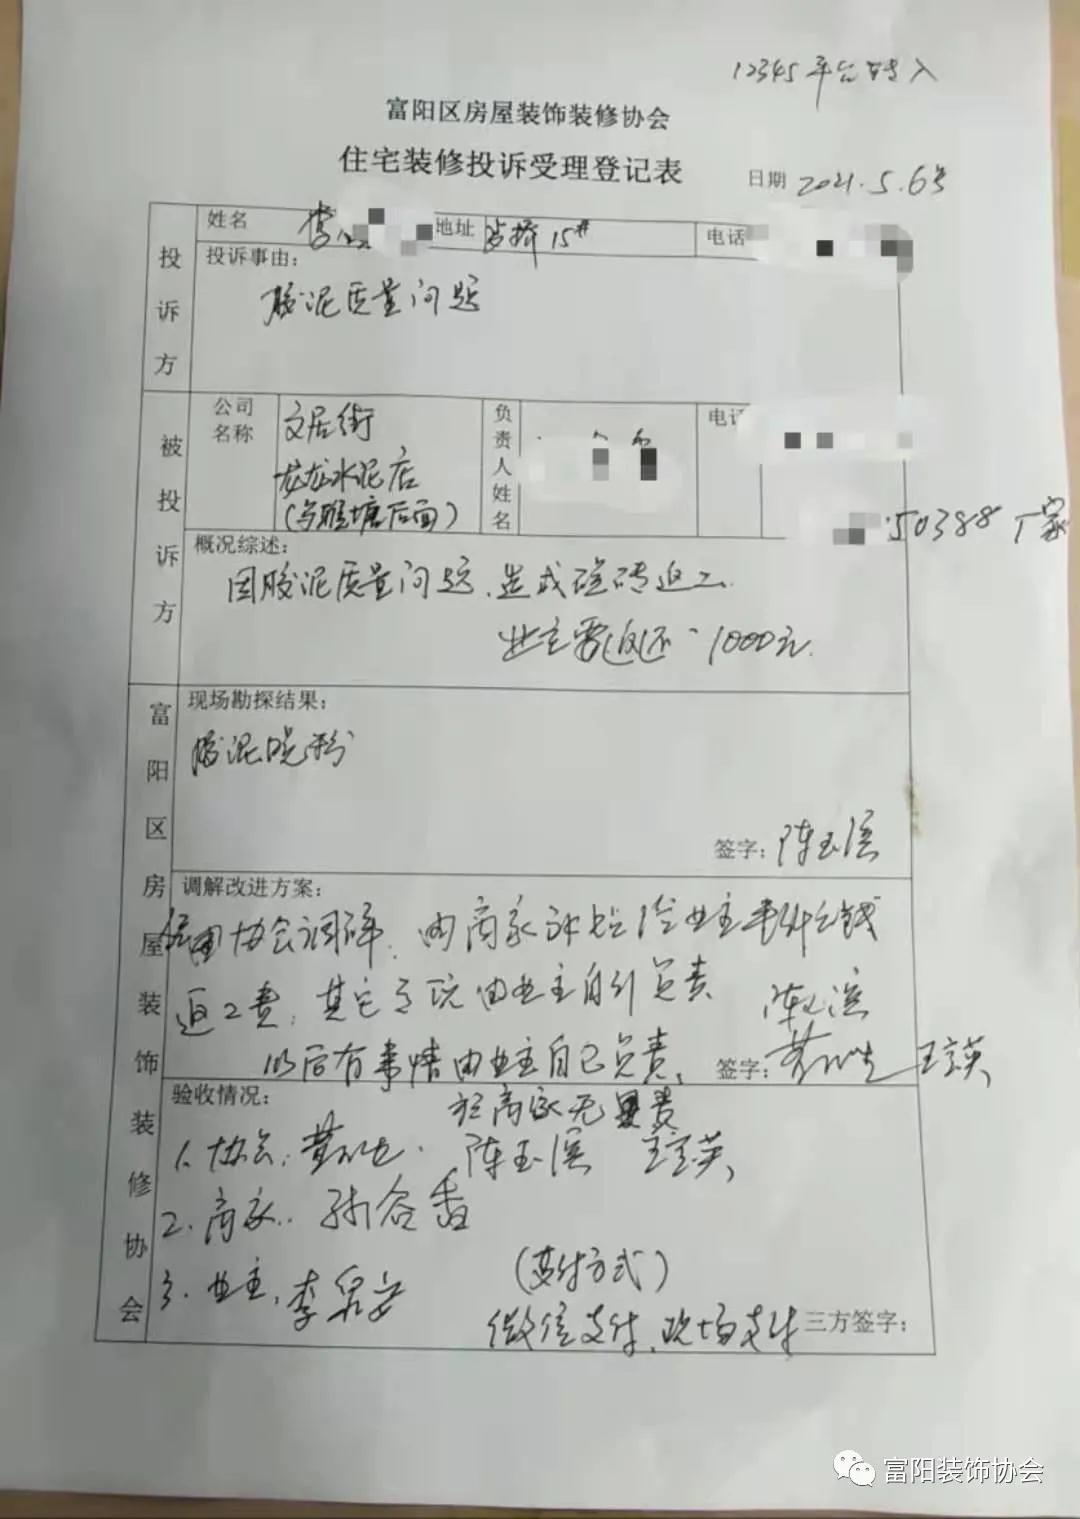 12345平台转入
富阳区房屋装饰装修协会
住宅装修投诉受理登记表
日期 2021.5.6号
投诉方
姓名 李 地址 15# 电话
投诉事由:
胶泥质量问题
被投诉方
公司名称
文居街
龙龙水泥店
(乌雅塘后面)
负责人姓名
电话
50388 厂家
概况综述:
因胶泥质量问题、造成磁砖返工.
业主需返还 1000元.
富阳区房屋装饰装修协会
现场勘探结果:
胶泥脱粉
签字: 陈玉溪
调解改进方案:
协会调解、由商家补贴给业主
返工费, 其它 由业主自行负责
陈玉溪
以后有事情由业主自己负责、
签字: 王宝英
于商家无
验收情况:
1. 协会: 陈玉溪 王宝英
2. 商家: 孙谷香
3. 业主, 李泉安
(支付方式)
微信支付、现场支付
三方签字:
富阳装饰协会